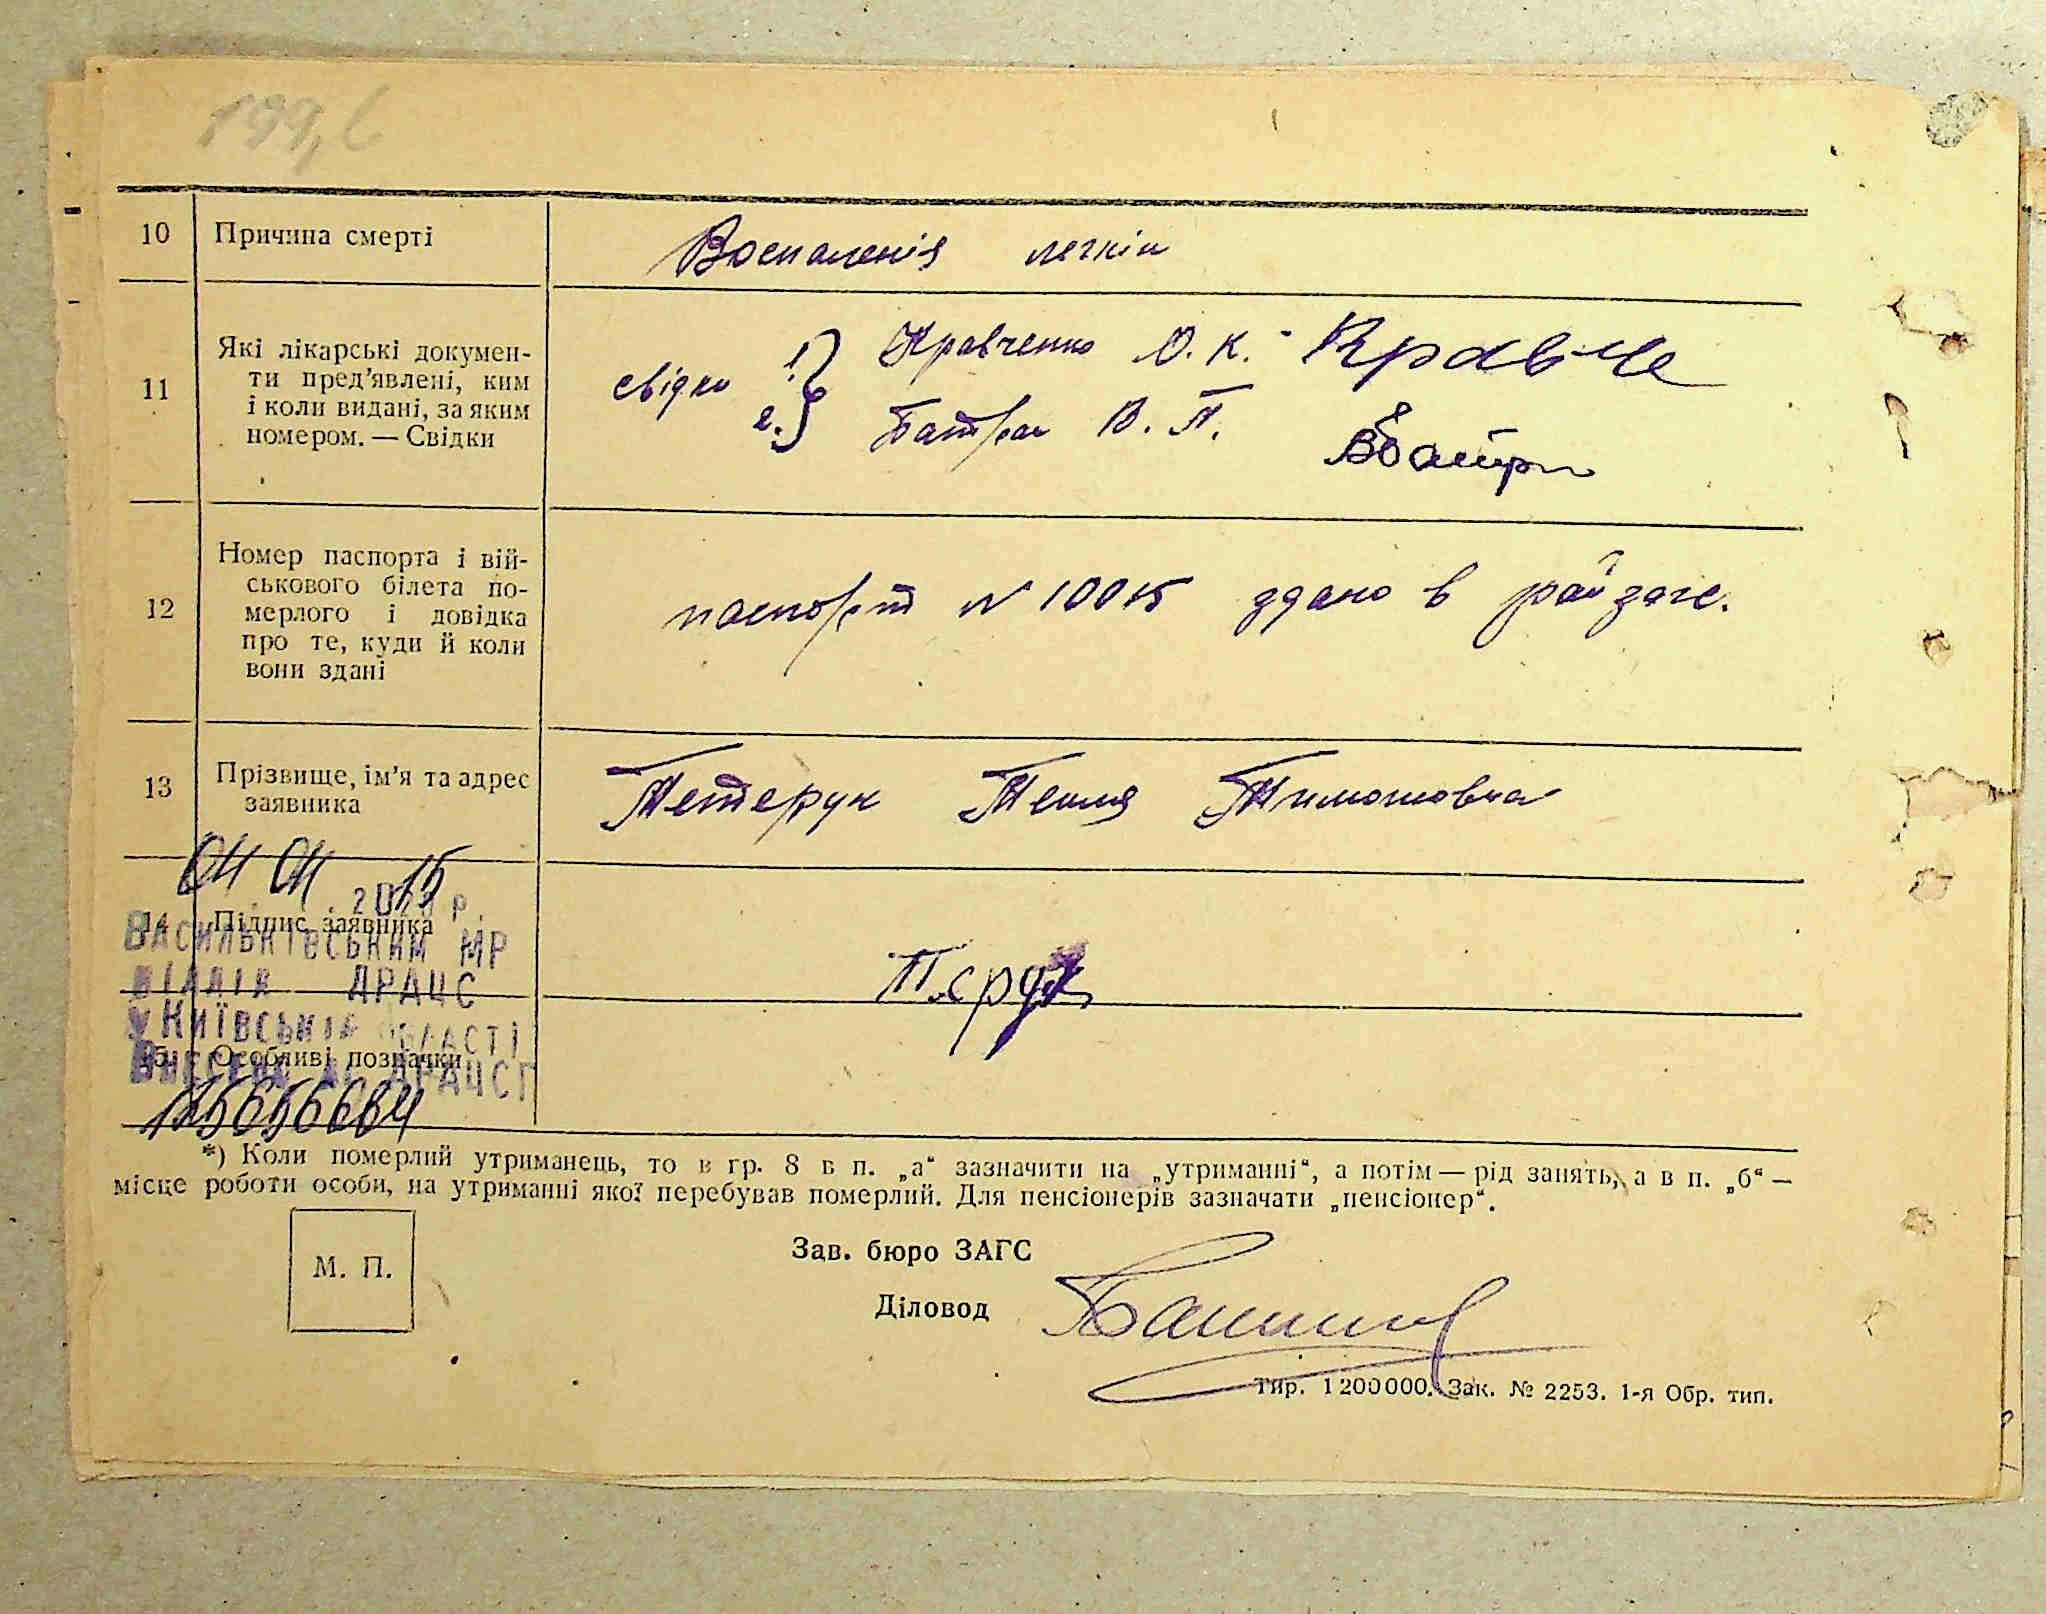 10 Причина смерті Воспаленія легкін
11 Які лікарські докумен-
ти пред'явлені, ким
і коли видані, за яким
номером. — Свідки
свідки 1. Кравченко О. К. - Кравче
2. Батрак В. П. ВБатр
12 Номер паспорта і вій-
ськового білета по-
мерлого і довідка
про те, куди й коли
вони здані
паспорт N 10015 здано в райзагс.
13 Прізвище, ім'я та адрес
заявника
Тетерук Текля Тимошовна
04 04 2015 р.
14 Підпис заявника
ВАСИЛЬКІВСЬКИМ МР
ВІДДІЛ ДРАЦС
У КИЇВСЬКІЙ ОБЛАСТІ
15 Особливі позначки
ВНЕСЕНО ДО ДРАЦСГ
*) Коли померлий утриманець, то в гр. 8 в п. „а“ зазначити на „утриманні“, а потім — рід занять, а в п. „б“ —
місце роботи особи, на утриманні якої перебував померлий. Для пенсіонерів зазначати „пенсіонер“.
М. П.
Зав. бюро ЗАГС
Діловод
Тир. 1200000. Зак. № 2253. 1-я Обр. тип.